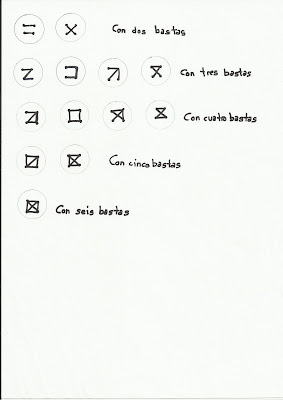 Con dos bastas
Con tres bastas
Con cuatro bastas
Con cinco bastas
Con seis bastas